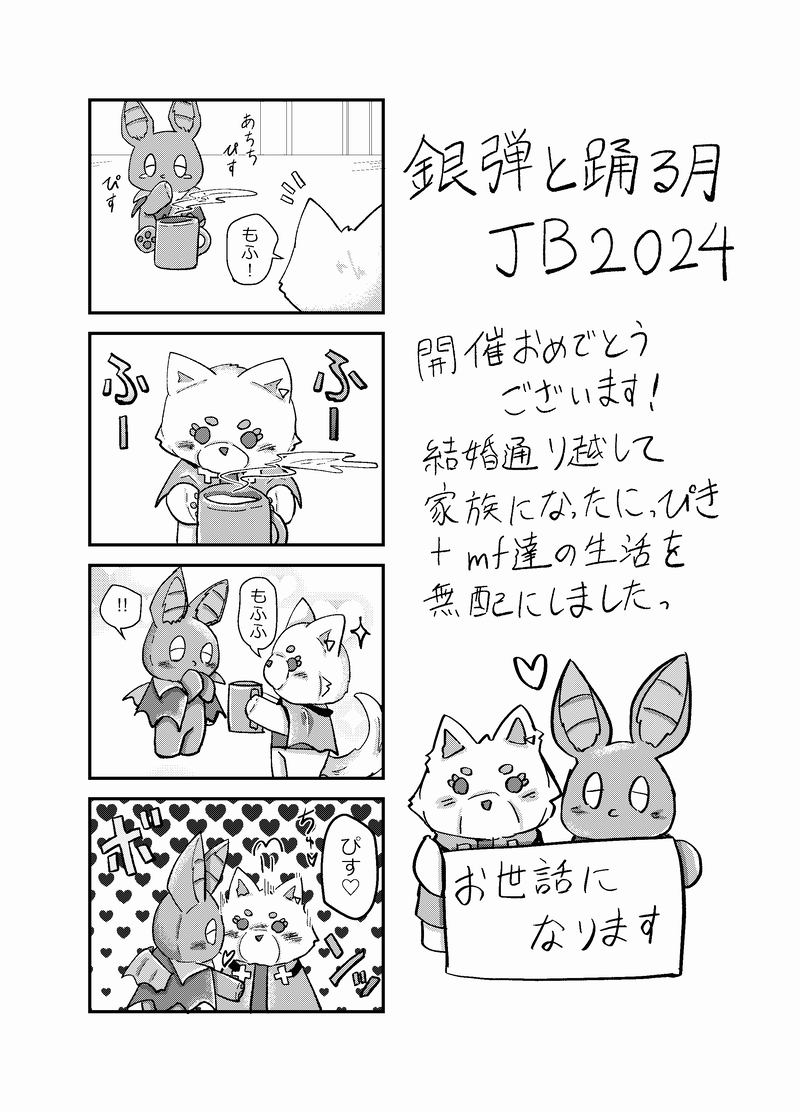 銀弾と踊る月
JB2024
開催おめでとう
ございます!
結婚通り越して
家族になったにっぴき
+mf達の生活を
無配にしました。
お世話に
なります
あちち
ぴす
ぴす
もふ!
ふーー
ふーー
もふふ
!!
ちゅ
ぴす♡
ボンッ